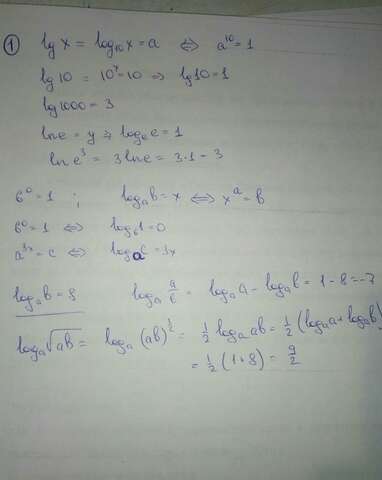 ① lg x = log₁₀x = a ⇔ a¹⁰ = 1
lg 10 = 10ˣ = 10 ⇒ lg 10 = 1
lg 1000 = 3
ln e = y ⇒ logₑe = 1
ln e³ = 3 ln e = 3·1 - 3
6⁰ = 1 ; logₐb = x ⇔ xᵃ = b
6⁰ = 1 ⇔ log₆1 = 0
a³ˣ = c ⇔ logₐc = 3x
logₐb = 8 logₐ a/b = logₐa - logₐb = 1 - 8 = -7
logₐ√ab = logₐ(ab)^½ = ½ logₐ ab = ½(logₐa + logₐb)
= ½(1+8) = 9/2